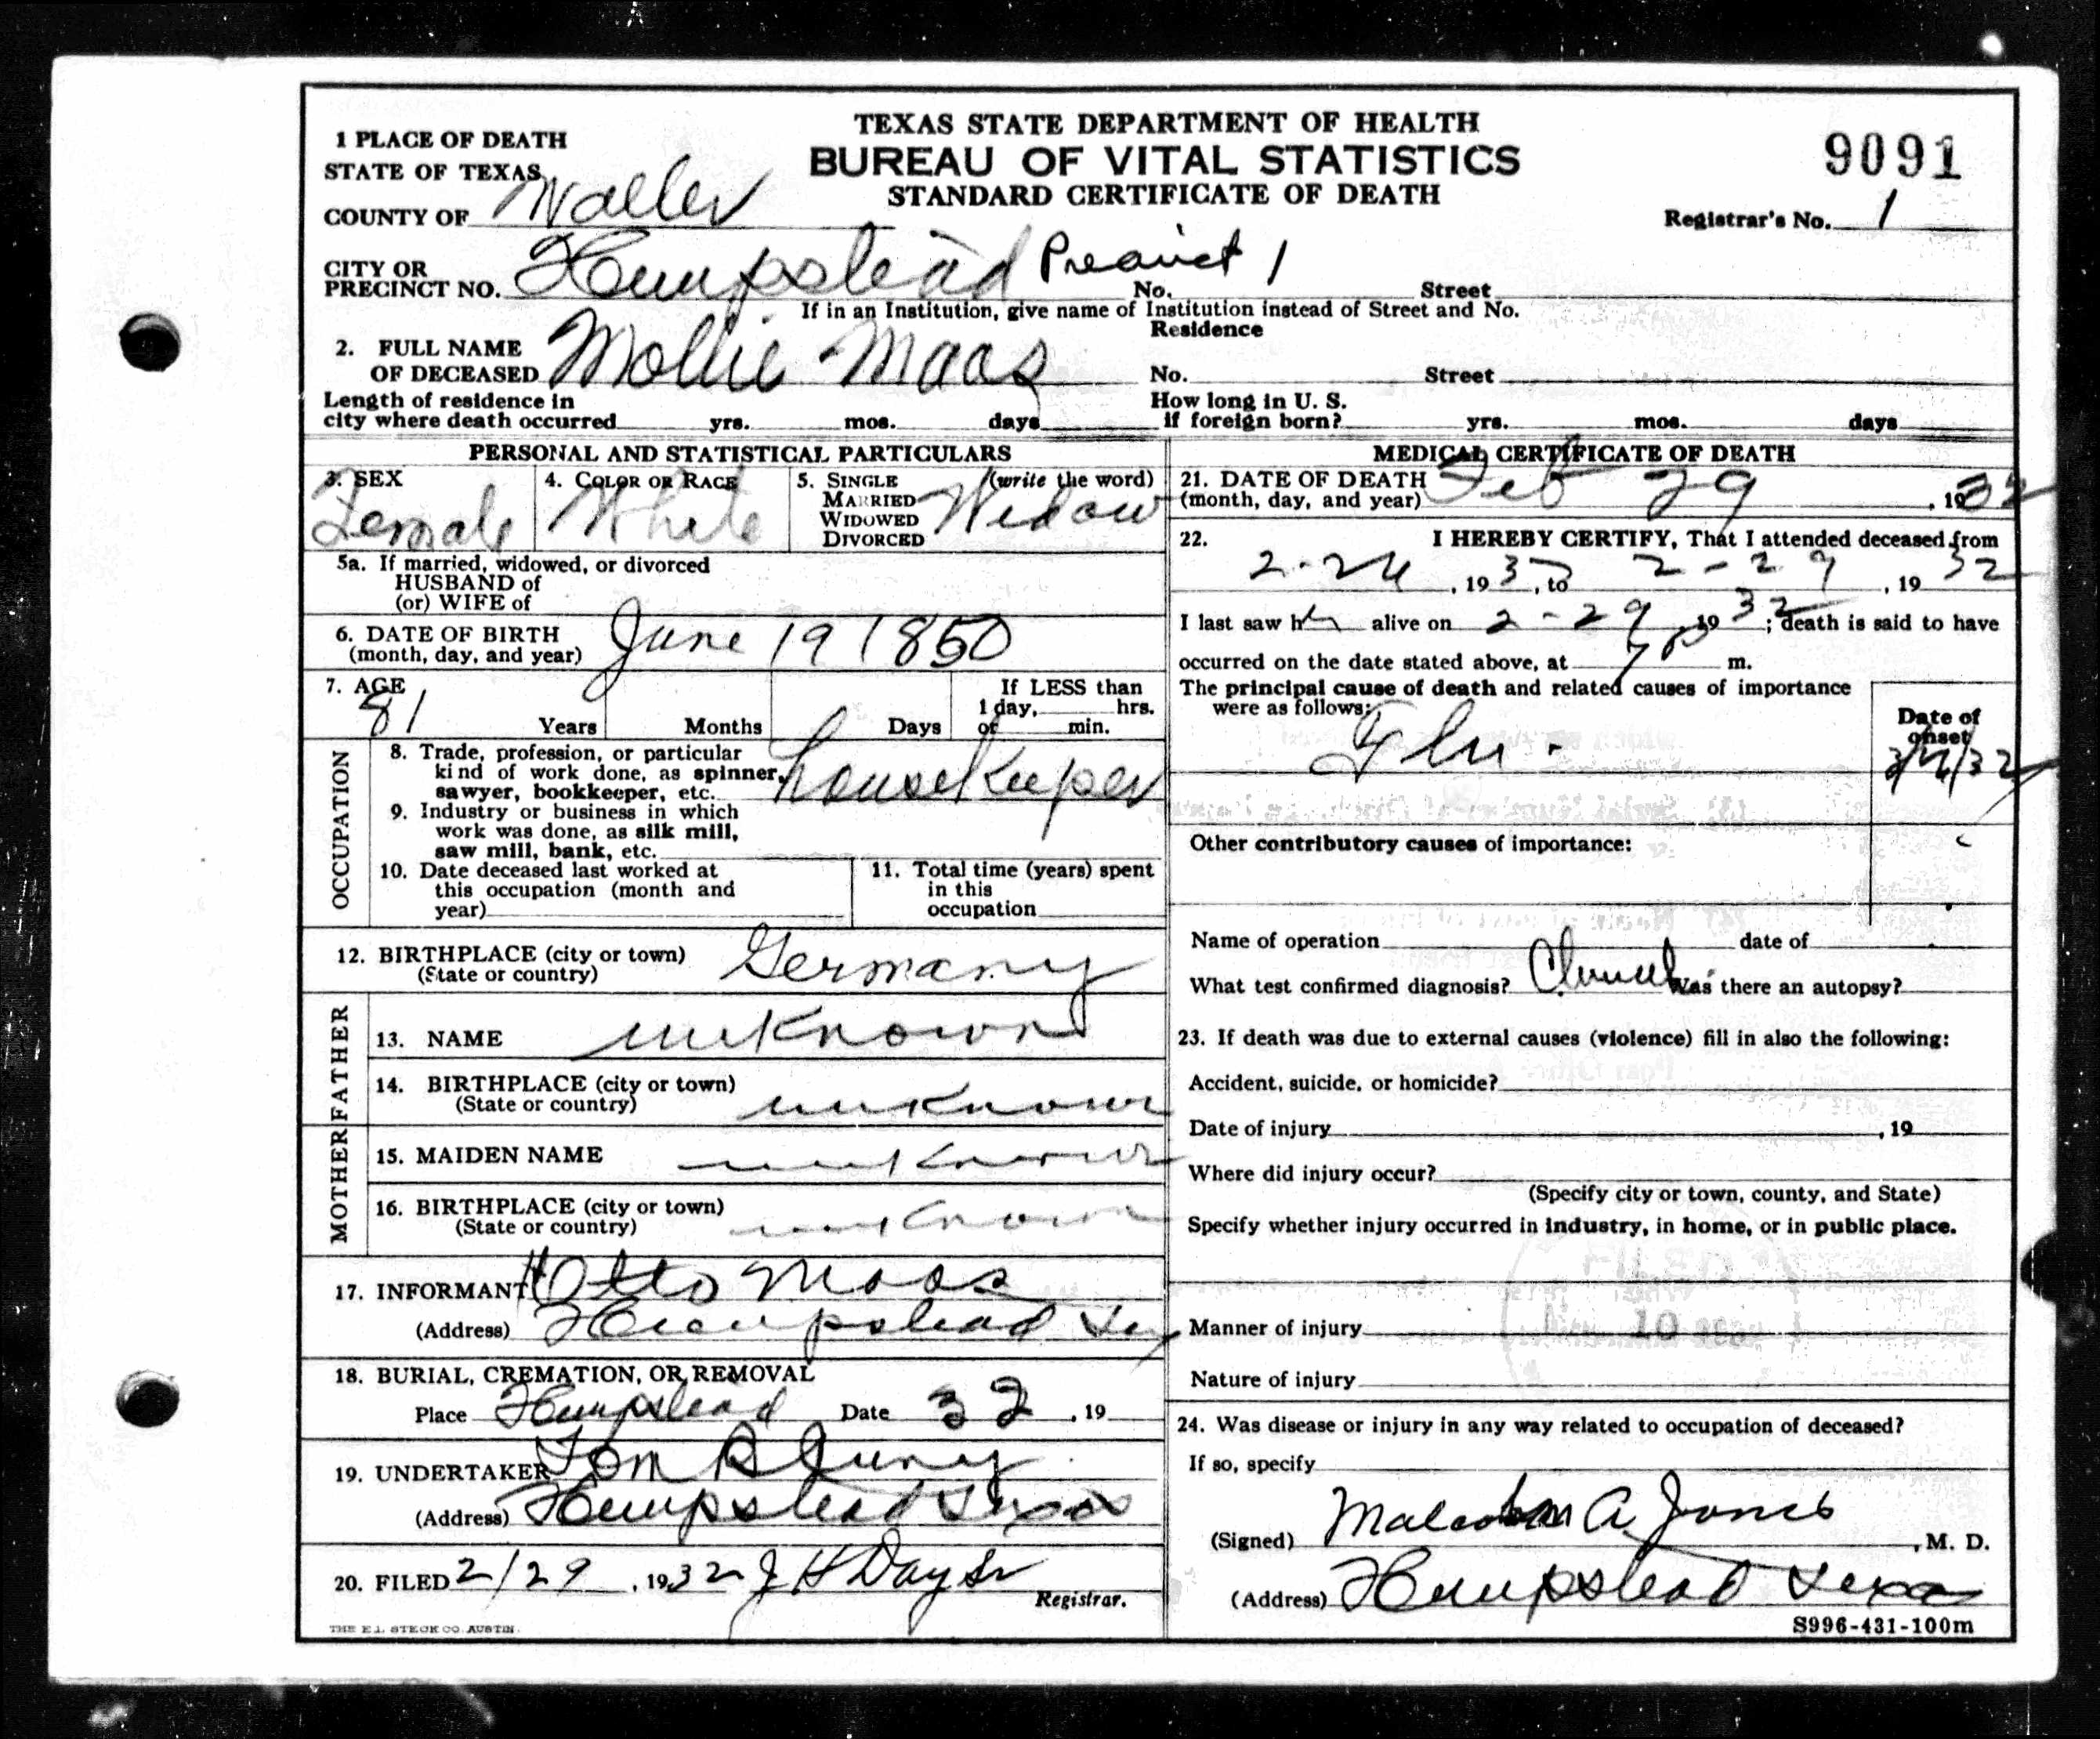 TEXAS STATE DEPARTMENT OF HEALTH
BUREAU OF VITAL STATISTICS
STANDARD CERTIFICATE OF DEATH
9091
Registrar's No. 1
1 PLACE OF DEATH
STATE OF TEXAS
COUNTY OF Waller
CITY OR
PRECINCT NO. Hempstead Precinct 1 No. Street
If in an Institution, give name of Institution instead of Street and No.
Residence
2. FULL NAME
OF DECEASED Mollie Maas No. Street
Length of residence in
city where death occurred yrs. mos. days
How long in U. S.
if foreign born? yrs. mos. days
PERSONAL AND STATISTICAL PARTICULARS
3. SEX
Female
4. COLOR OR RACE
White
5. SINGLE
MARRIED
WIDOWED
DIVORCED
(write the word)
Widow
5a. If married, widowed, or divorced
HUSBAND of
(or) WIFE of
6. DATE OF BIRTH
(month, day, and year) June 19 1850
7. AGE
81 Years Months Days
If LESS than
1 day, hrs.
or min.
OCCUPATION
8. Trade, profession, or particular
kind of work done, as spinner,
sawyer, bookkeeper, etc. housekeeper
9. Industry or business in which
work was done, as silk mill,
saw mill, bank, etc.
10. Date deceased last worked at
this occupation (month and
year)
11. Total time (years) spent
in this
occupation
12. BIRTHPLACE (city or town)
(State or country) Germany
FATHER
13. NAME unKnown
14. BIRTHPLACE (city or town)
(State or country) unKnown
MOTHER
15. MAIDEN NAME unKnown
16. BIRTHPLACE (city or town)
(State or country) unKnown
17. INFORMANT Otto Maas
(Address) Hempstead Tex
18. BURIAL, CREMATION, OR REMOVAL
Place Hempstead Date 3 2, 19
19. UNDERTAKER Tom
(Address) Hempstead Texas
20. FILED 2/29, 1932 J H Day Sr
Registrar.
THE E.L. STECK CO. AUSTIN.
MEDICAL CERTIFICATE OF DEATH
21. DATE OF DEATH
(month, day, and year) Feb 29, 1932
22. I HEREBY CERTIFY, That I attended deceased from
2-24, 1932, to 2-29, 1932
I last saw h alive on 2-29 1932; death is said to have
occurred on the date stated above, at 7 P m.
The principal cause of death and related causes of importance
were as follows:
Flu.
Date of
onset
Other contributory causes of importance:
Name of operation date of
What test confirmed diagnosis? Clinical Was there an autopsy?
23. If death was due to external causes (violence) fill in also the following:
Accident, suicide, or homicide?
Date of injury, 19
Where did injury occur?
(Specify city or town, county, and State)
Specify whether injury occurred in industry, in home, or in public place.
Manner of injury
Nature of injury
24. Was disease or injury in any way related to occupation of deceased?
If so, specify
(Signed) Malcolm A. Jones, M. D.
(Address) Hempstead Texas
S996-431-100m